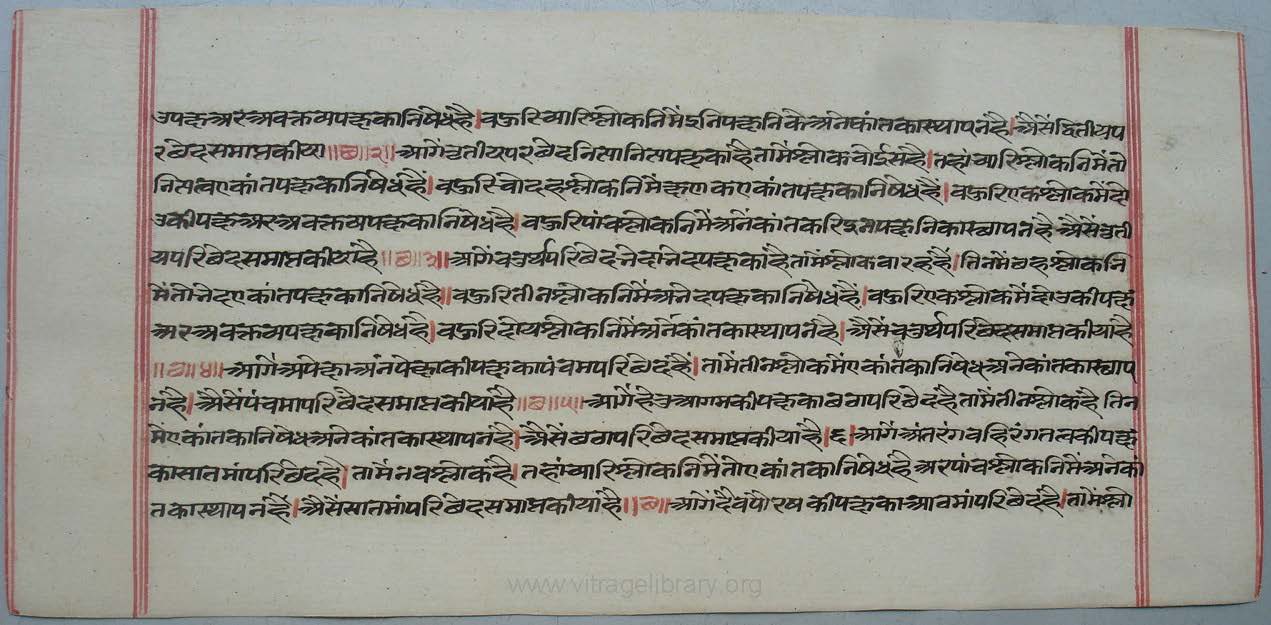 उपक्ष अर अवक्तव्यपक्षका निषेध है। बहुरि च्यारि श्लोकनिमैं इनि पक्षनिके अनेकांतका स्थापन है। ऐसैं द्वितीय प
रिछेद समाप्त कीया॥छ॥२॥ आगैं तृतीय परिछेद नित्यानित्य पक्षका है तामैं श्लोक चोईस है। तहां च्यारि श्लोकनिमैं तो
नित्यत्व एकांतपक्षका निषेध है। बहुरि चोदह श्लोकनिमैं क्षणक एकांतपक्षका निषेध है। बहुरि एक श्लोकमैं दो
उकी पक्ष अर अवक्तव्यपक्षका निषेध है। बहुरि पांच श्लोकनिमैं अनेकांतकरि इन पक्षनिका स्थापन है ऐसैं तृती
य परिछेद समाप्त कीया है॥छ॥३॥ आगैं चतुर्थ परिछेद भेदाभेद पक्षका है तामैं श्लोक बारह है। तिनमैं छह श्लोकनि
मैं तो भेद एकांतपक्षका निषेध है॥ बहुरि तीन श्लोकनिमैं अभेद पक्षका निषेध है। बहुरि एक श्लोकमैं दोउकी पक्ष
अर अवक्तव्यपक्षका निषेध है। बहुरि दोय श्लोकनिमैं अनेकांतका स्थापन है। ऐसैं चतुर्थ परिछेद समाप्त कीया है
॥छ॥४॥ आगैं अपेक्षा अनपेक्षाकी पक्षका पंचम परिछेद है। तामैं तीन श्लोकमैं एकांतका निषेध अनेकांतका स्थाप
न है। ऐसैं पंचमा परिछेद समाप्त कीया है॥छ॥५॥ आगैं हेतु आगमकी पक्षका छठा परिछेद है तामैं तीन श्लोक है तिन
मैं एकांतका निषेध अनेकांतका स्थापन है। ऐसैं छठा परिछेद समाप्त कीया है।६। आगैं अंतरंग वहिरंग तत्वकी पक्ष
का सातमां परिछेद है। तामैं नव श्लोक है। तहां च्यारि श्लोकनिमैं तो एकांतका निषेध है अर पांच श्लोकनिमैं अनेकां
तका स्थापन है। ऐसैं सातमां परिछेद समाप्त कीया है॥छ॥ आगैं दैव पौरषकी पक्षका आठमां परिछेद है। तामैं श्लो
www.vitragelibrary.org